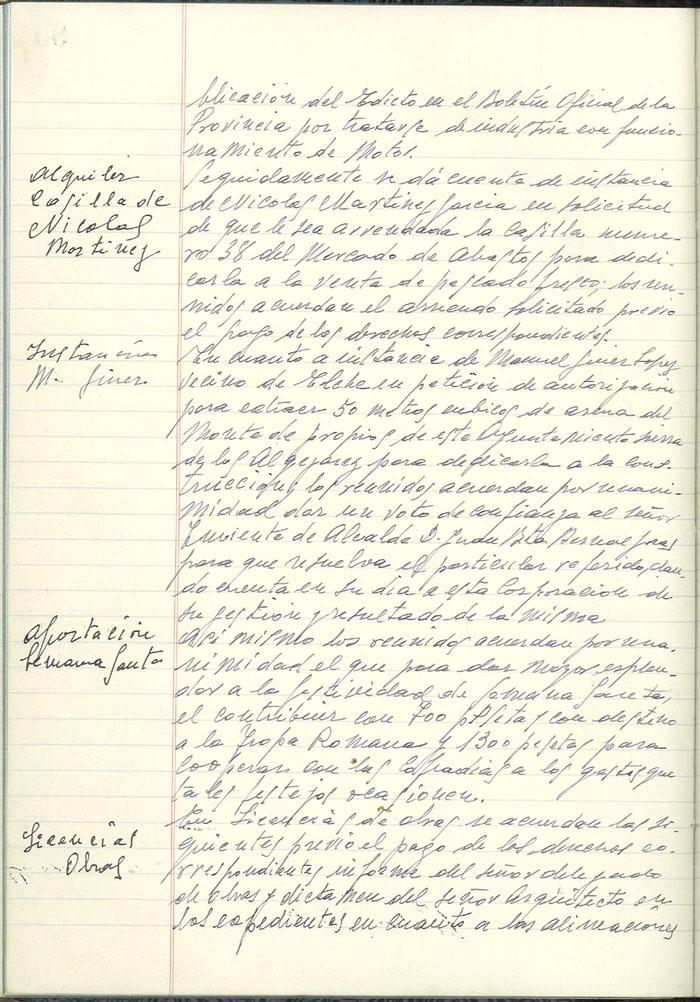 blicación del Edicto en el Boletín Oficial de la
Provincia por tratarse de industria con funcio-
namiento de Motor.
Alquiler
Casilla de
Nicolas
Martinez
Seguidamente se dá cuenta de instancia
de Nicolas Martinez Garcia en solicitud
de que le sea arrendada la Casilla nume-
ro 38 del Mercado de Abastos para dedi-
carla a la venta de pescado fresco; los reu-
nidos acuerdan el arriendo solicitado previo
el pago de los derechos correspondientes.
Instancia
M. Giner
En cuanto a instancia de Manuel Giner Lopez
vecino de Elche en petición de autorización
para extraer 50 metros cubicos de arena del
Monte de propios de este Ayuntamiento sierra
de los Algezares para dedicarla a la cons-
trucción; los reunidos acuerdan por unani-
midad dar un voto de confianza al señor
Teniente de Alcalde D. Juan Bta. Bernal
para que resuelva el particular referido, dan-
do cuenta en su dia a esta Corporacion de
su gestion y resultado de la misma
Aportación
Semana Santa
Asi mismo los reunidos acuerdan por una-
nimidad el que para dar mayor esplen-
dor a la festividad de Semana Santa,
el contribuir con 700 pesetas con destino
a la Tropa Romana y 1300 pesetas para
cooperar con las Cofradias a los gastos que
tales festejos ocasionen.
Licencias
Obras
En Licencias de obras se acuerdan las si-
guientes previo el pago de los derechos co-
rrespondientes informe del señor delegado
de Obras y dictamen del señor Arquitecto en
los expedientes en cuanto a las alineaciones